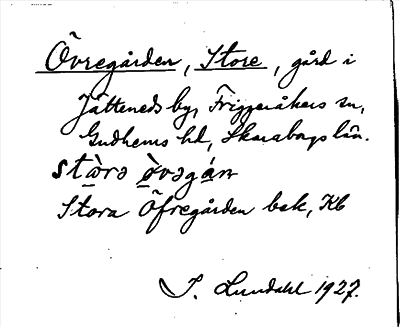 Övregården, Store, gård i
Jätteneds by, Friggeråkers sn,
Gudhems hd, Skaraborgs län.
stὰrə ὸvəgán
Stora Öfregården bek, Kb
I. Lundahl 1927.